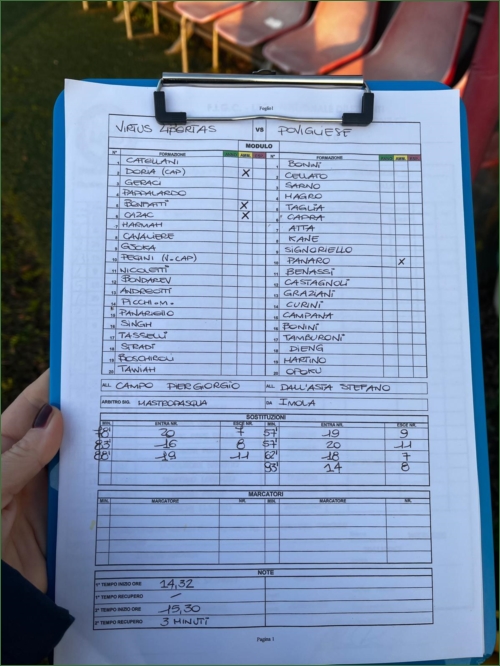 Foglio1
VIRTUS LIBERTAS VS POVIGLIESE
MODULO
N° FORMAZIONE GOL AMM. ESP. N° FORMAZIONE GOL AMM. ESP.
1 CATELLANI 1 BONINI
2 DORIA (CAP) X 2 CELLATO
3 GERACI 3 SARNO
4 PAPPALARDO 4 MAGRO
5 BONFATTI X 5 TAGLIA
6 CAZAC X 6 CAPRA
7 HARMAH 7 ATTA
8 CAVALIERE 8 KANE
9 GJOKA 9 SIGNORIELLO
10 PEGINI (V.CAP) 10 PANARO X
11 NICOLETTI 11 BENASSI
12 BONDAREV 12 CASTAGNOLI
13 ANDREOTTI 13 GRAZIANI
14 PICCHI.M. 14 CURINI
15 PANARIELLO 15 CAMPANA
16 SINGH 16 BONINI
17 TASSELLI 17 TAMBURONI
18 STRADI 18 DIENG
19 BOSCHIROLI 19 MARTINO
20 TAWIAH 20 OPOKU
ALL. CAMPO PIERGIORGIO ALL. DALL'ASTA STEFANO
ARBITRO SIG. MASTROPASQUA DA IMOLA
SOSTITUZIONI
MIN. ENTRA NR. ESCE NR. MIN. ENTRA NR. ESCE NR.
78' 20 7 57' 19 9
83' 16 8 57' 20 11
88' 19 11 62' 18 7
93' 14 8
MARCATORI
MIN. MARCATORE NR. MIN. MARCATORE NR.
NOTE
1° TEMPO INIZIO ORE 14,32
1° TEMPO RECUPERO /
2° TEMPO INIZIO ORE 15,30
2° TEMPO RECUPERO 3 MINUTI
Pagina 1